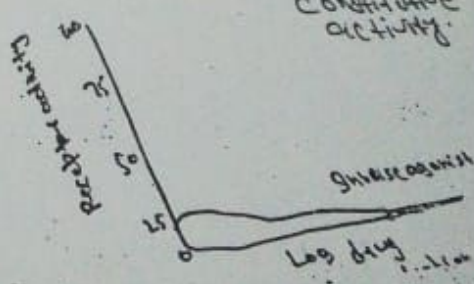 Constitutive
activity.
Receptor activity
25
50
0
Inverse agonist
Log drug